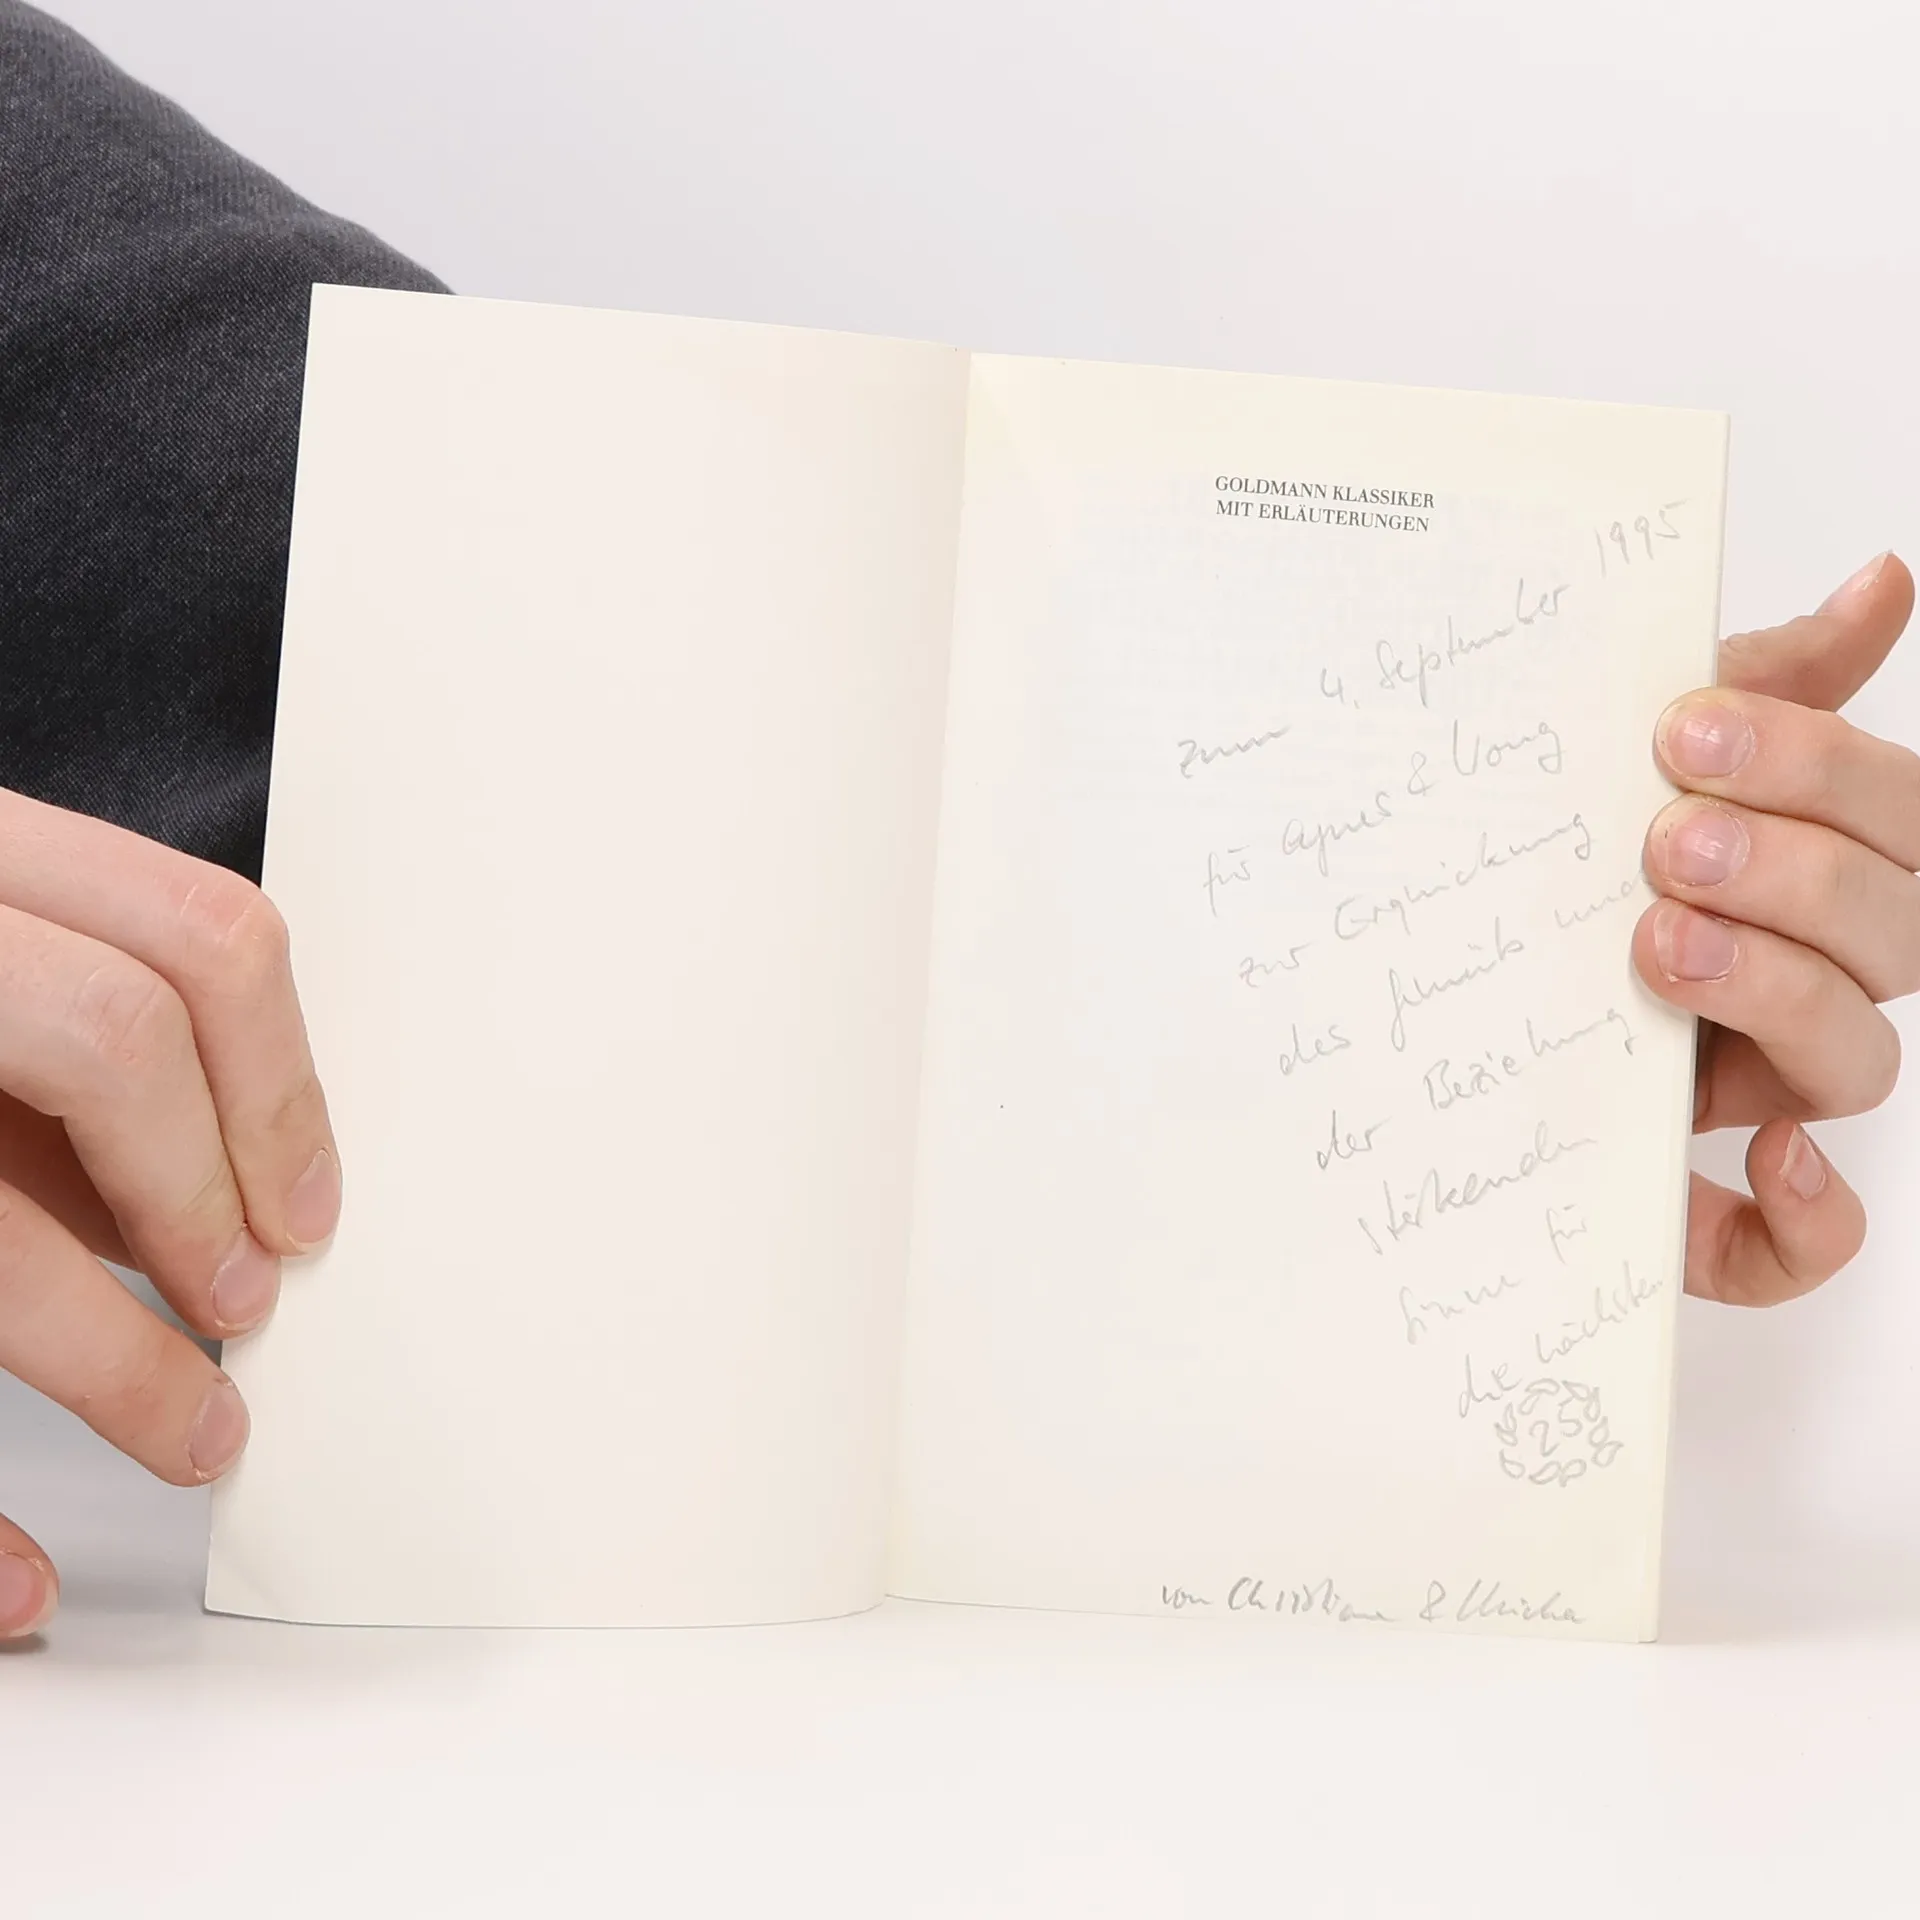 GOLDMANN KLASSIKER
MIT ERLÄUTERUNGEN
zum 4. September 1995
für Agnes & Vong
zur Erquickung
des Gemüts und
der Beziehung
stärkenden
Sinne für
die nächsten
25
von Christiane &